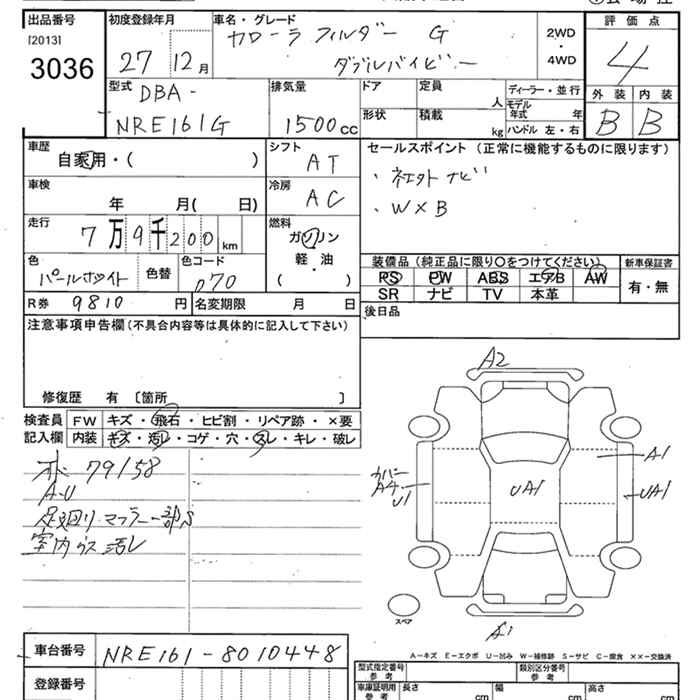 出品番号 初度登録年月 車名・グレード 2WD・4WD 評価点
[2013] 3036 27 12月 カローラフィルダー G ダブルバイビー 4
型式 DBA- NRE161G 排気量 1500cc ドア 定員 人 ディーラー・並行 外装 内装
形状 積載 kg モデル年式 年 ハンドル 左・右 B B
車歴 自家用・( ) シフト AT セールスポイント (正常に機能するものに限ります)
車検 年 月( 日) 冷房 AC ・社外ナビ
・W×B
走行 7万9千200km 燃料 ガソリン 軽・油 ( )
色 パールホワイト 色替 色コード 070 装備品(純正品に限り○をつけてください) 新車保証書
PS PW ABS エアB AW 有・無
SR ナビ TV 本革
R券 9810円 名変期限 月 日 後日品
注意事項申告欄(不具合内容等は具体的に記入して下さい)
修復歴 有 [箇所 ]
検査員 FW キズ・飛石・ヒビ割・リペア跡・×要
記入欄 内装 キズ・汚レ・コゲ・穴・スレ・キレ・破レ
79158
A-U
足廻リ マフラー一部S
室内 汚レ
A2
A1
カバー
A4
U1
UA1
UA1
スペア
A1
A-キズ E-エクボ U-凹み W-補修跡 S-サビ C-腐食 ××-交換済
車台番号 NRE161-8010448
型式指定番号 参考 類別区分番号 参考
登録番号 車庫証明用 参考 長さ cm 幅 cm 高さ cm